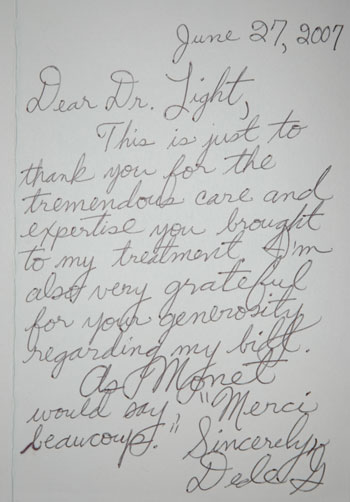 June 27, 2007
Dear Dr. Light,
This is just to
thank you for the
tremendous care and
expertise you brought
to my treatment. I'm
also very grateful
for your generosity
regarding my bill.
As Monet
would say, "Merci
beaucoup."
Sincerely,
G